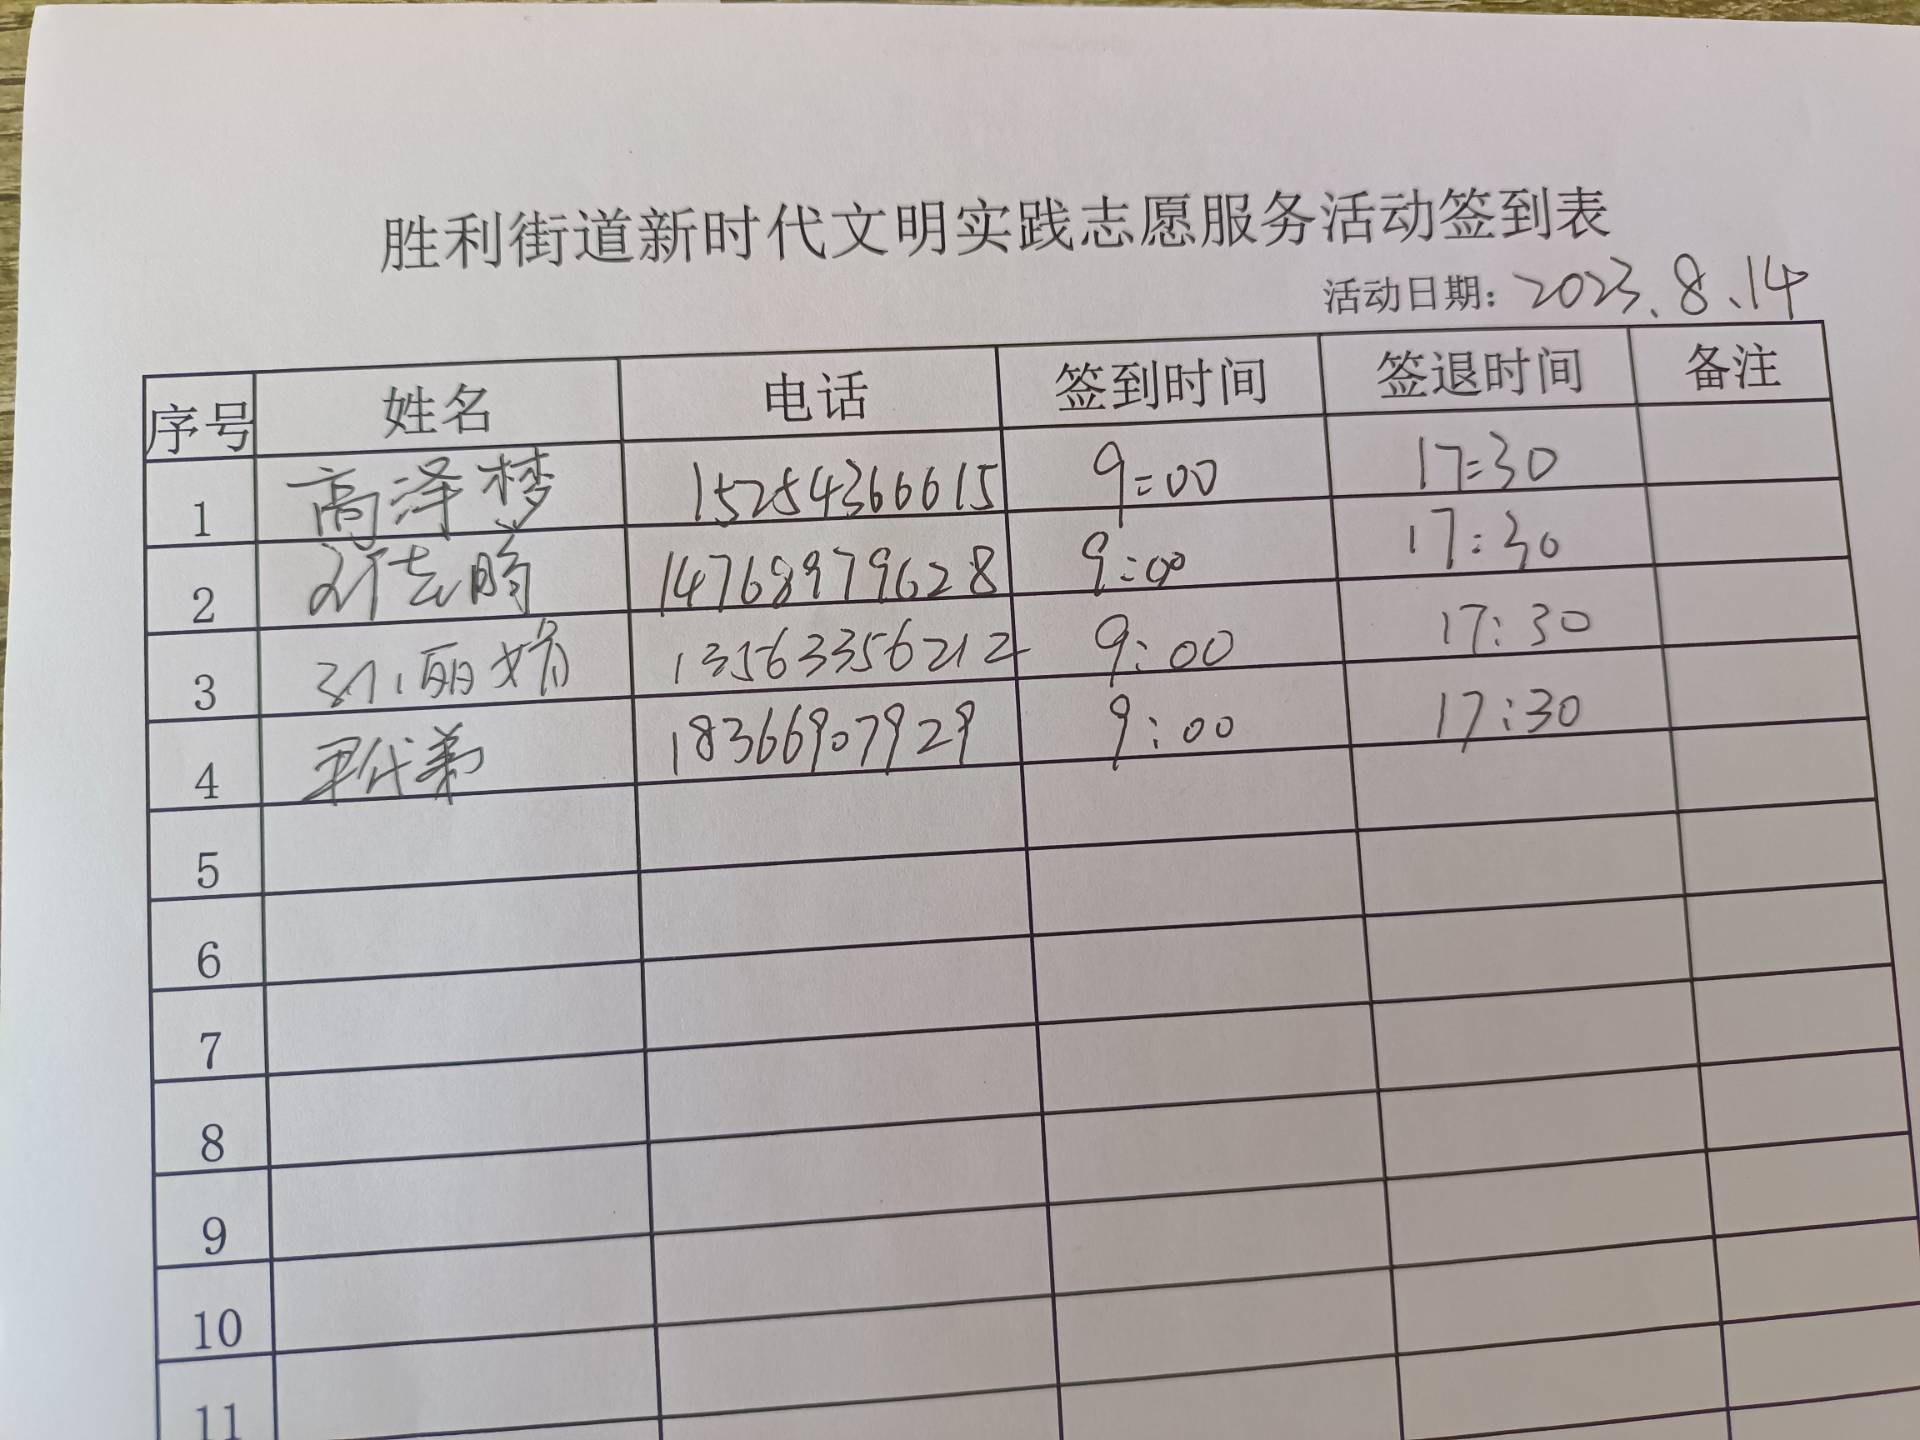 胜利街道新时代文明实践志愿服务活动签到表
活动日期：2023.8.14
序号 姓名 电话 签到时间 签退时间 备注
1 高泽梦 15254366615 9:00 17:30
2 14768979628 9:00 17:30
3 孙丽娟 13563356212 9:00 17:30
4 代弟 18366907929 9:00 17:30
5
6
7
8
9
10
11